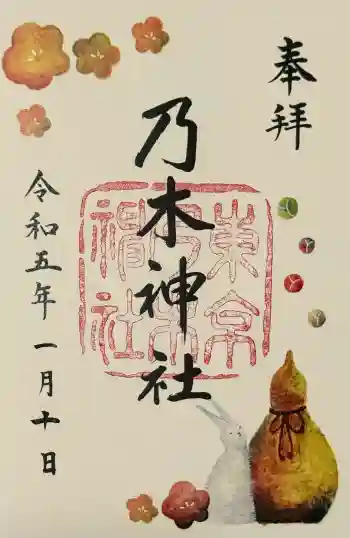 奉拝
乃木神社
東京
乃木
神社
令和五年一月十日